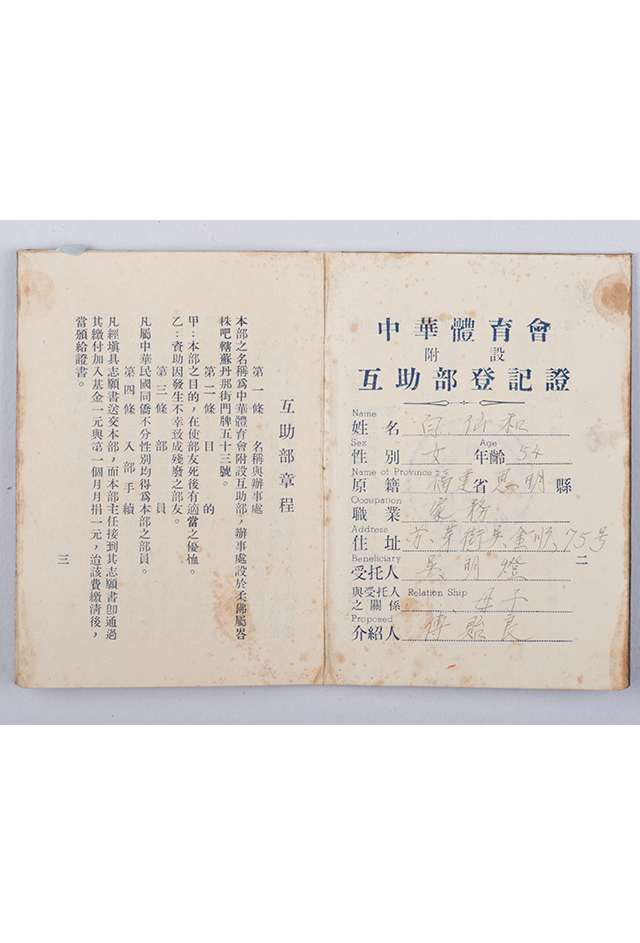 中華體育會
附設
互助部登記證
Name
姓名 白仙和
Sex Age
性別 女 年齡 54
Name of Province
原籍 福建省思明縣
Occupation
職業 家務
Address
住址 苏、華街吳金順、75号
Beneficiary
受托人 吳明燈
與受托人 Relation Ship
之關係 母子
Proposed
介紹人 傅貽良
二
互助部章程
第一條 名稱與辦事處
本部之名稱為中華體育會附設互助部，辦事處設於柔佛屬峇
株吧轄蘇丹那街門牌五十三號。
第二條 目的
甲：本部之目的，在使部友死後有適當之優恤。
乙：資助因發生不幸致成殘廢之部友。
第三條 部員
凡屬中華民國同僑不分性別均得為本部之部員。
第四條 入部手續
凡經填具志願書送交本部，而本部主任接到其志願書卽通過
其繳付加入基金一元與第一個月月捐一元，迨該費繳清後，
當頒給證書。
三